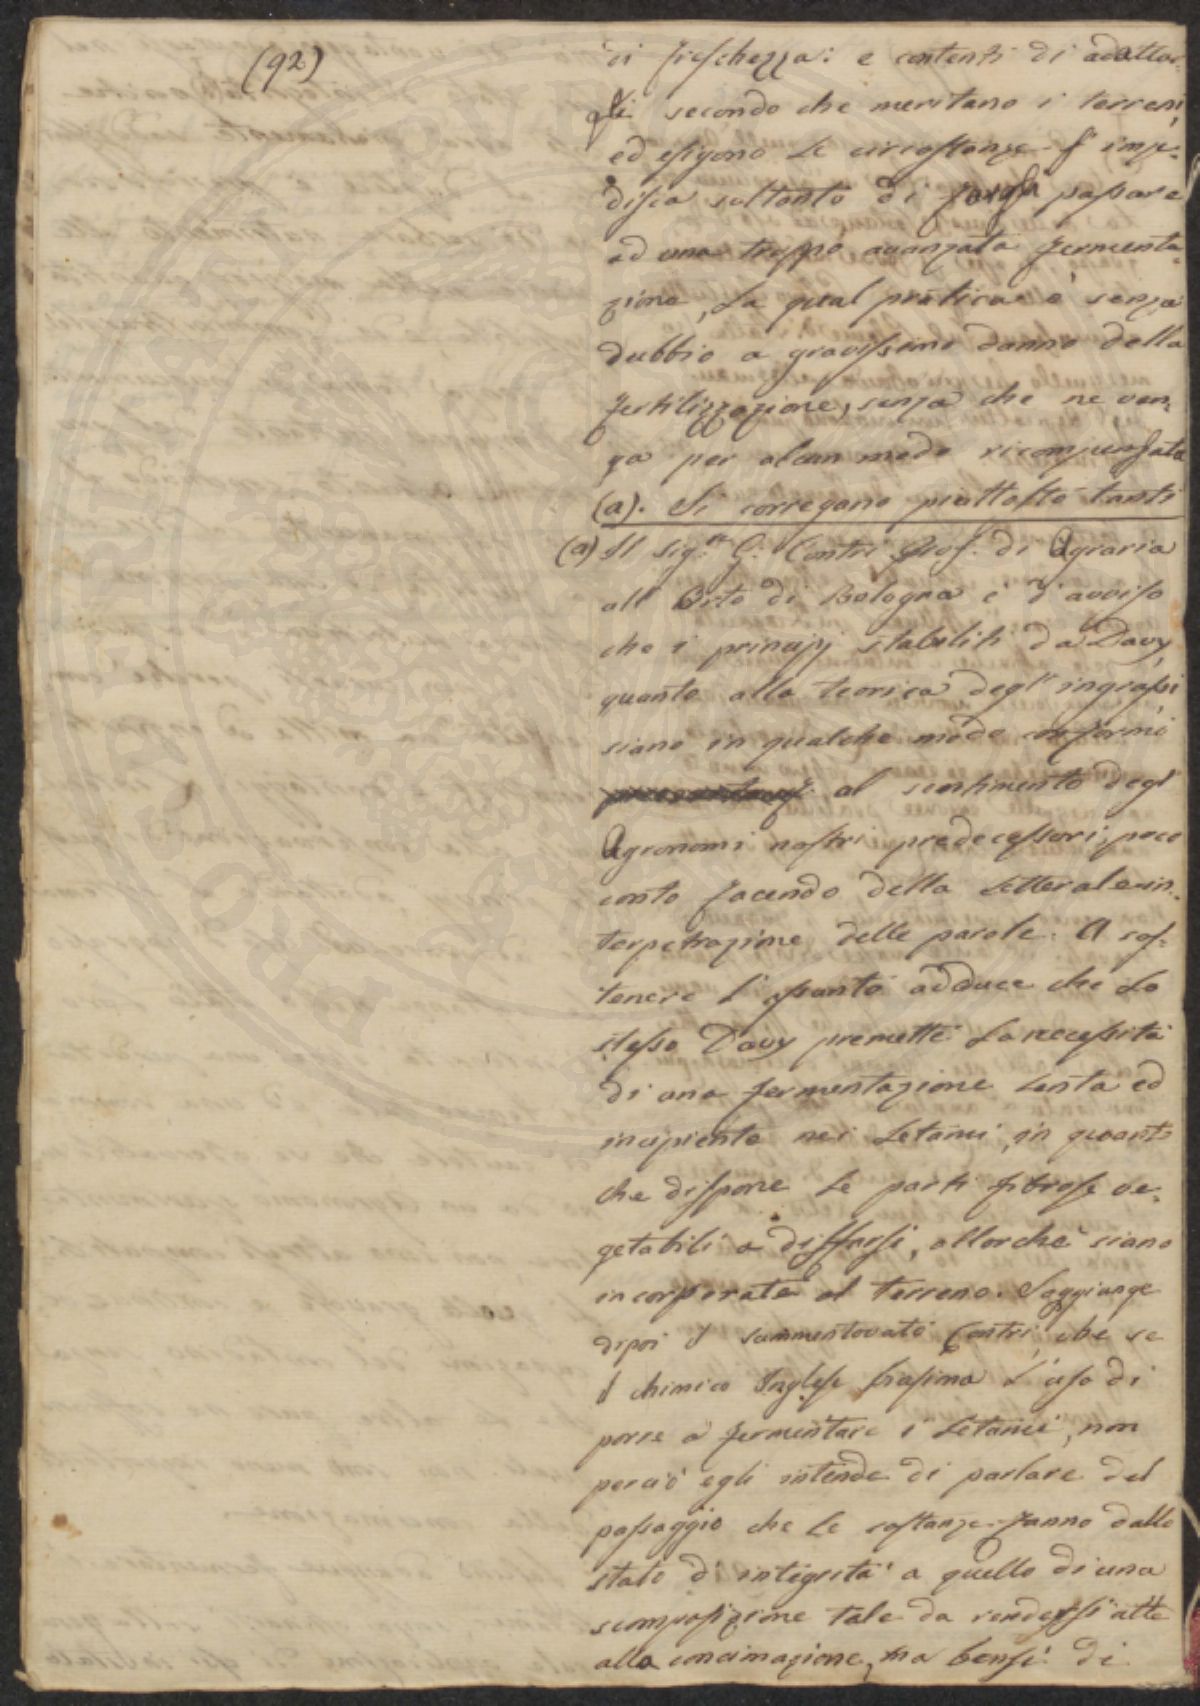 (92)
di freschezza: e contenti di adattar-
gli secondo che meritano i terreni,
ed esigono le circostanze s'impe-
disca soltanto di passare
ad una troppo avanzata fermenta-
zione, la qual pratica è senza
dubbio a gravissimo danno della
fertilizzazione, senza che ne ven-
ga per alcun modo ricompensata
(a). Si correggano piuttosto tanti
(a) Il sig.re G. Contri Prof. di Agraria
all' Orto di Bologna è d'avviso
che i principj stabiliti da Davy,
quanto alla teorica degl' ingrassi
siano in qualche modo conformi
al sentimento degl'
Agronomi nostri predecessori, poco
conto facendo della letterale in-
terpetrazione delle parole. A sos-
tenere l'assunto adduce che lo
stesso Davy premette la necessità
di una fermentazione lenta ed
incipiente nei letami, in quanto
che dispone le parti fibrose ve-
getabili a disfarsi, allorchè siano
incorporate al terreno. Soggiunge
dipoi il summentovato Contri, che se
il chimico Inglese biasima l'uso di
porre a fermentare i letami, non
perciò egli intende di parlare del
passaggio che le sostanze fanno dallo
stato d' integrità a quello di una
scomposizione tale da rendersi atte
alla concimazione, ma bensì di